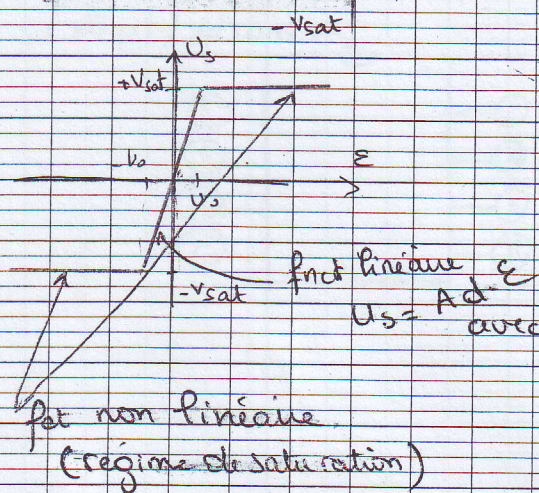 -Vsat
Us
+Vsat
-Vo
ε
-Vsat
fnct linéaire
Us = Ad.ε
avec
fct non linéaire
(régime de saturation)